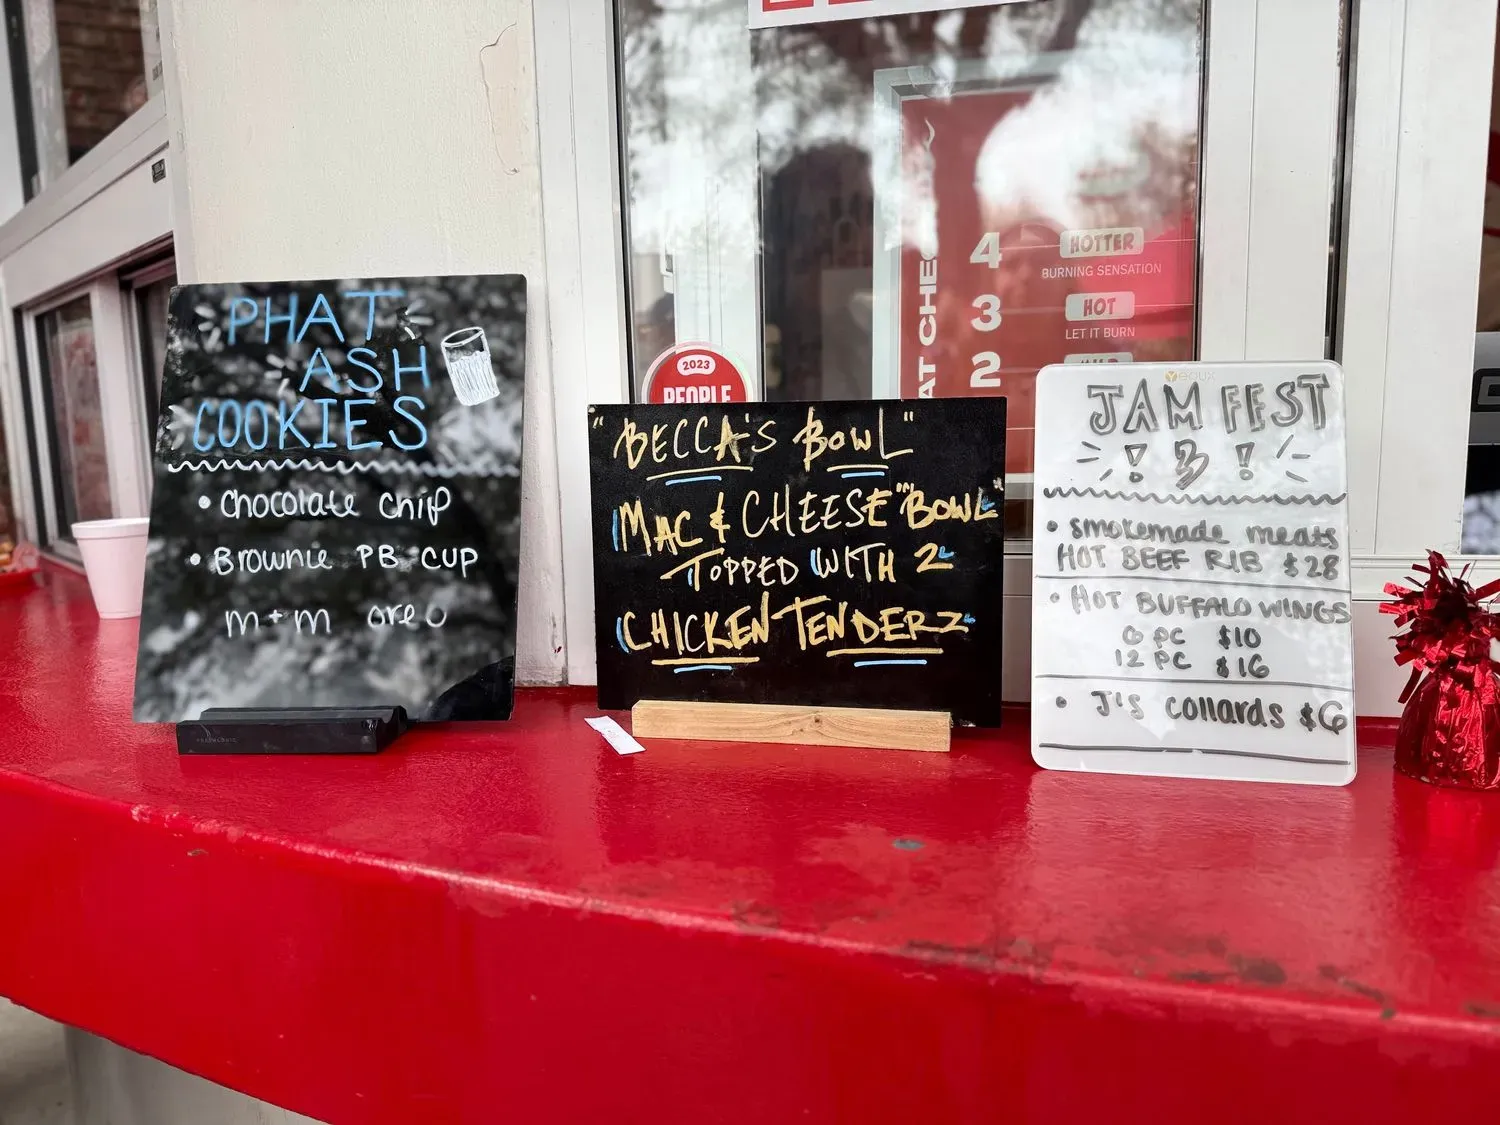 PHAT
ASH
COOKIES
• chocolate chip
• Brownie PB cup
m+m oreo
2023
PEOPLE
"BECCA'S BOWL"
MAC & CHEESE "BOWL"
TOPPED WITH 2
CHICKEN TENDERZ
4 HOTTER
BURNING SENSATION
3 HOT
LET IT BURN
2
Yeaux
JAM FEST
! 3 !
• smokemade meats
HOT BEEF RIB $28
• HOT BUFFALO WINGS
6 PC $10
12 PC $16
• J's collards $6